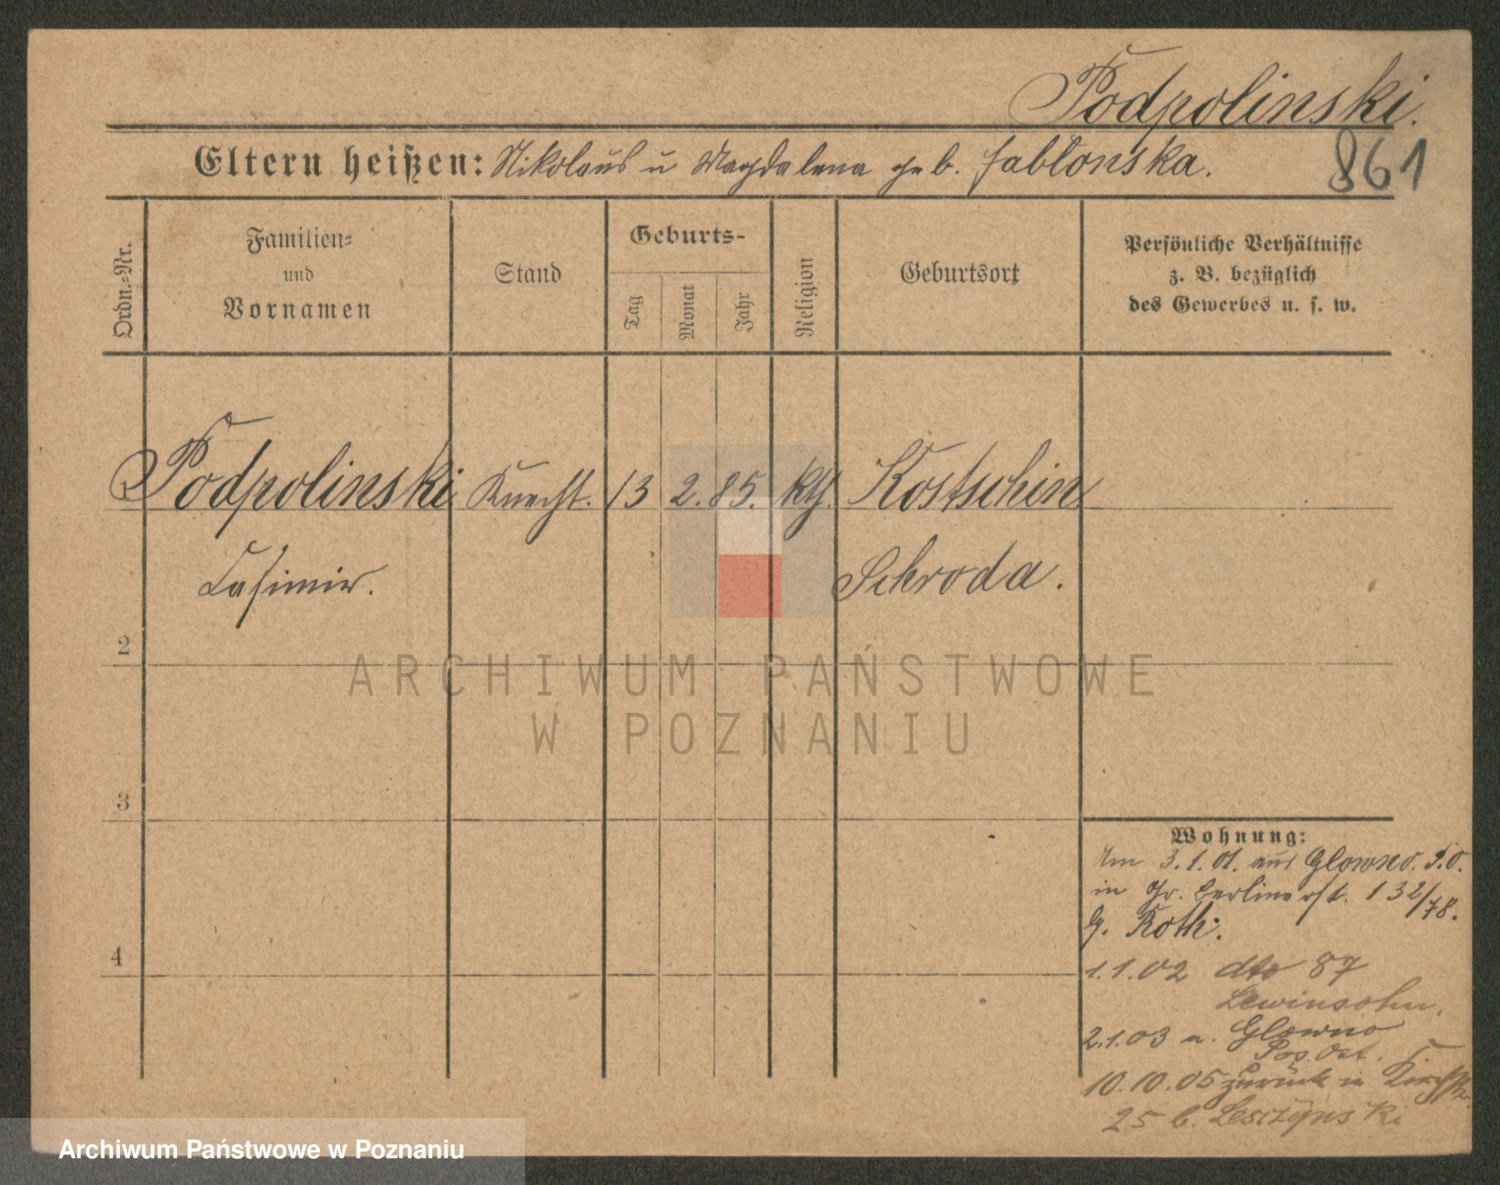 Podpolinski.
861
Eltern heißen: Nikolaus u Magdalena geb. Jabłonska.
Ordn.-Nr.
Familien-
und
Vornamen
Stand
Geburts-
Tag
Monat
Jahr
Religion
Geburtsort
Persönliche Verhältnisse
z. B. bezüglich
des Gewerbes u. s. w.
1 Podpolinski Knecht. 13 2. 85. kth. Kostschin
Casimir. Schroda.
2
3
4
Wohnung:
Am 3.1.01. aus Glowno. P.O.
in Gr. Berlinerst. 132/78.
b. Roth.
1.1.02 dto 87
Lewinsohn.
2.1.03 n. Glowno
Pos. Ost.
10.10.05 zurück in
25 b. Leszczynski
ARCHIWUM PAŃSTWOWE
W POZNANIU
Archiwum Państwowe w Poznaniu